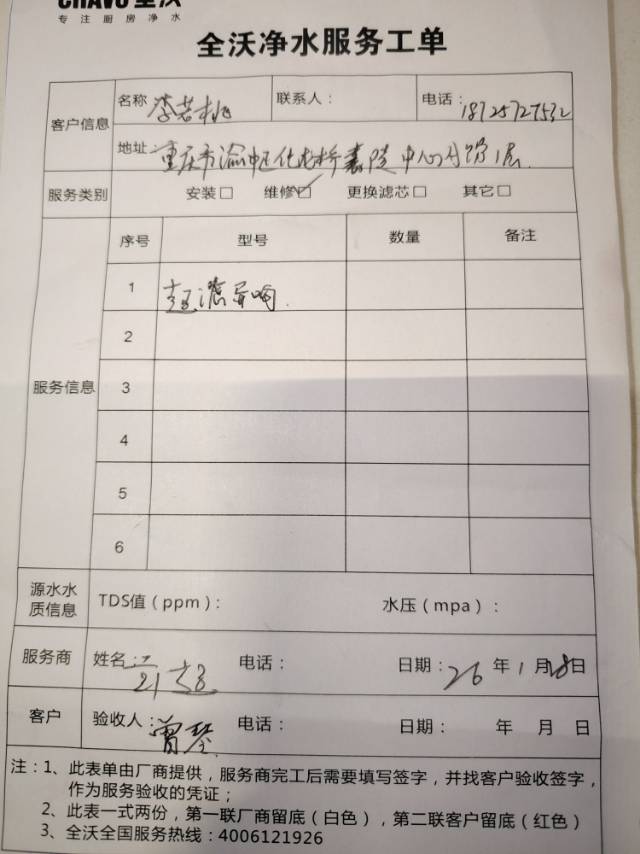 CHAVO 全沃
专注厨房净水
全沃净水服务工单
客户信息 名称 李若桃 联系人： 电话：18725727532
地址： 重庆市渝中区化龙桥嘉陵中心
服务类别 安装□ 维修☑ 更换滤芯□ 其它□
服务信息 序号 型号 数量 备注
1 超滤异响.
2
3
4
5
6
源水水质信息 TDS值（ppm）： 水压（mpa）：
服务商 姓名： 电话： 日期：26 年 1 月 28 日
客户 验收人：曾琴 电话： 日期： 年 月 日
注：1、此表单由厂商提供，服务商完工后需要填写签字，并找客户验收签字，
作为服务验收的凭证；
2、此表一式两份，第一联厂商留底（白色），第二联客户留底（红色）
3、全沃全国服务热线：4006121926